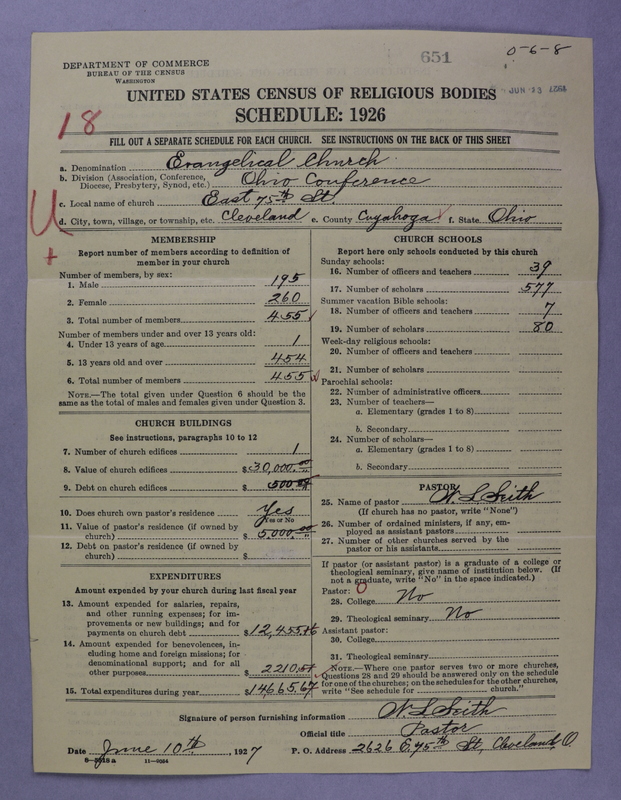 651
0-6-8
DEPARTMENT OF COMMERCE
BUREAU OF THE CENSUS
WASHINGTON
JUN 13 1927
UNITED STATES CENSUS OF RELIGIOUS BODIES
SCHEDULE: 1926
18
FILL OUT A SEPARATE SCHEDULE FOR EACH CHURCH. SEE INSTRUCTIONS ON THE BACK OF THIS SHEET
a. Denomination Evangelical Church
b. Division (Association, Conference, Diocese, Presbytery, Synod, etc.) Ohio Conference
c. Local name of church East 75th St.
d. City, town, village, or township, etc. Cleveland e. County Cuyahoga f. State Ohio
U
+
MEMBERSHIP
Report number of members according to definition of
member in your church
Number of members, by sex:
1. Male 195
2. Female 260
3. Total number of members 455
Number of members under and over 13 years old:
4. Under 13 years of age 1
5. 13 years old and over 454
6. Total number of members 455
NOTE.—The total given under Question 6 should be
same as the total of males and females given under Question 3.
CHURCH BUILDINGS
See instructions, paragraphs 10 to 12
7. Number of church edifices 1
8. Value of church edifices $30,000.00
9. Debt on church edifices $500
10. Does church own pastor's residence Yes
Yes or No
11. Value of pastor's residence (if owned by
church) $5,000.00
12. Debt on pastor's residence (if owned by
church) $
EXPENDITURES
Amount expended by your church during last fiscal year
13. Amount expended for salaries, repairs,
and other running expenses; for im-
provements or new buildings; and for
payments on church debt $12,455.16
14. Amount expended for benevolences, in-
cluding home and foreign missions; for
denominational support; and for all
other purposes $2210.51
15. Total expenditures during year $14665.67
CHURCH SCHOOLS
Report here only schools conducted by this church
Sunday schools:
16. Number of officers and teachers 39
17. Number of scholars 577
Summer vacation Bible schools:
18. Number of officers and teachers 7
19. Number of scholars 80
Week-day religious schools:
20. Number of officers and teachers
21. Number of scholars
Parochial schools:
22. Number of administrative officers
23. Number of teachers—
a. Elementary (grades 1 to 8)
b. Secondary
24. Number of scholars—
a. Elementary (grades 1 to 8)
b. Secondary
PASTOR
25. Name of pastor W. L. Seith
(If church has no pastor, write "None")
26. Number of ordained ministers, if any, em-
ployed as assistant pastors
27. Number of other churches served by the
pastor or his assistants
If pastor (or assistant pastor) is a graduate of a college or
theological seminary, give name of institution below. (If
not a graduate, write "No" in the space indicated.)
Pastor: 0
28. College No
29. Theological seminary No
Assistant pastor:
30. College
31. Theological seminary
NOTE.—Where one pastor serves two or more churches,
Questions 28 and 29 should be answered only on the schedule
for one of the churches; on the schedules for the other churches,
write "See schedule for church."
Signature of person furnishing information W. L. Seith
Official title Pastor
Date June 10th, 1927 P. O. Address 2626 E. 75th St, Cleveland, O.
11—9024